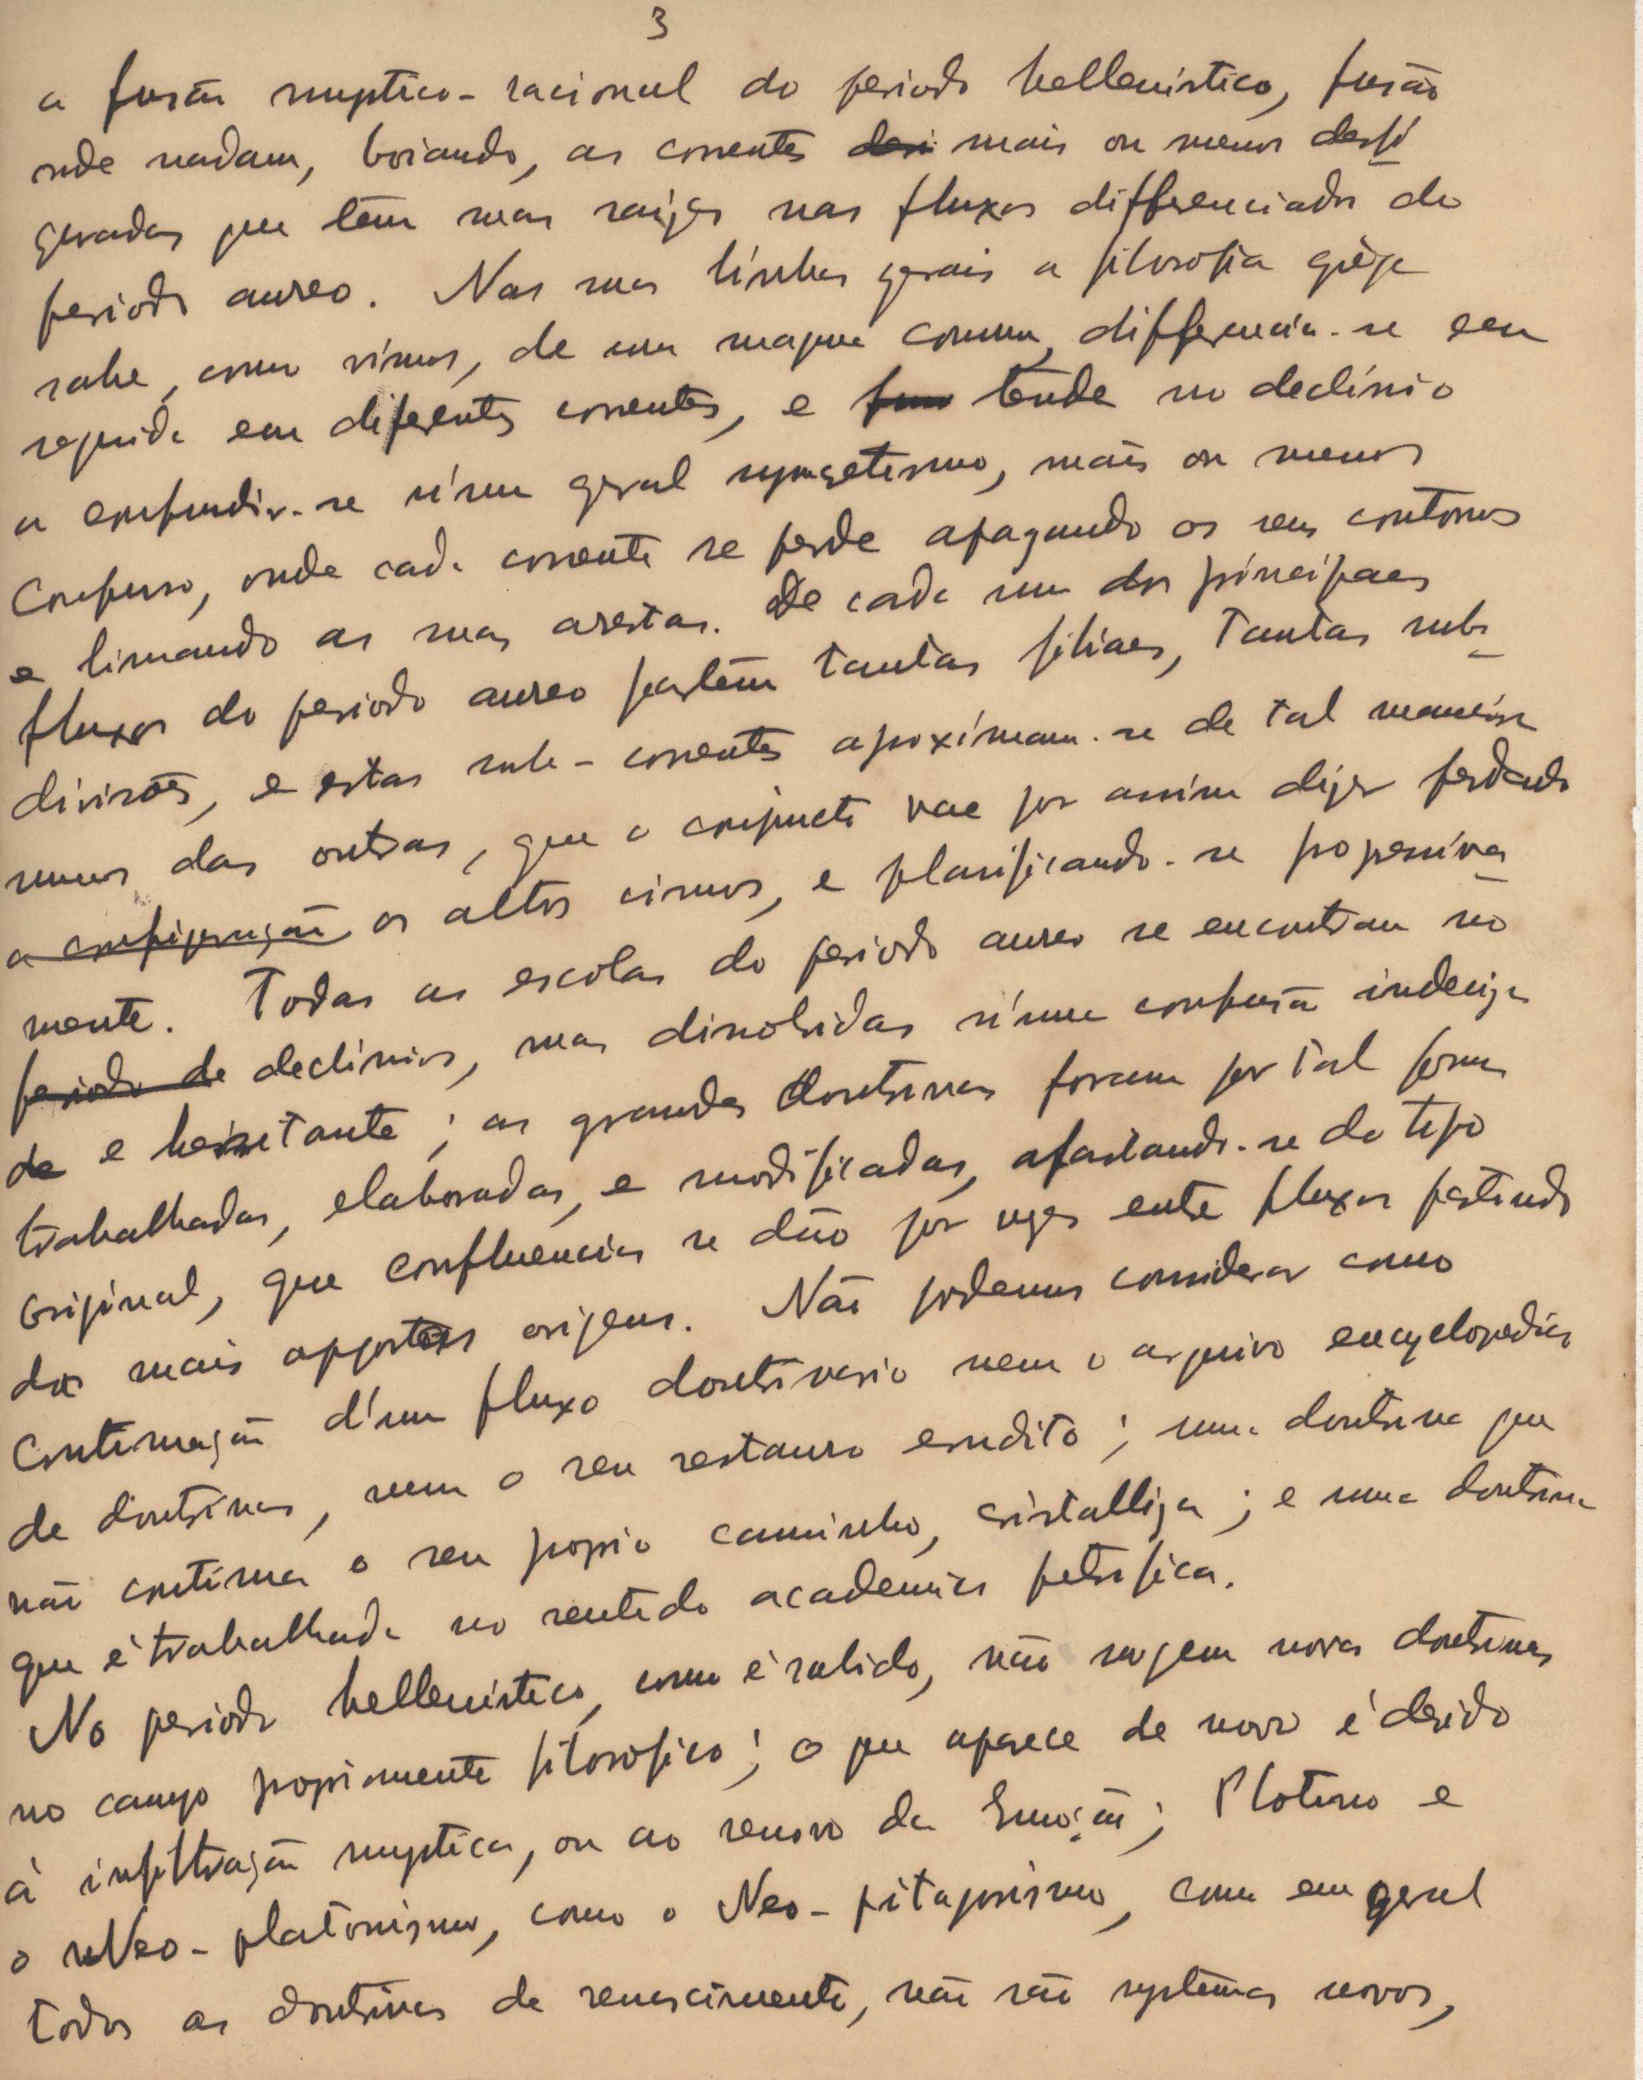 3
a fusão mystico-racional do periodo hellenistico, fusão
onde nadam, boiando, as correntes mais ou menos desfi-
guradas que têm suas raizes nas fluxos differenciados do
periodo aureo. Nas suas linhas gerais a filosofia grêga
sahe, como vimos, de um magma commum, differencia-se em
seguida em diferentes correntes, e tende no declínio
a confundir-se n'um geral syncretismo, mais ou menos
confuso, onde cada corrente se perde apagando os seus contornos
e limando as suas arestas. De cada um dos principaes
fluxos do periodo aureo partem tantas filiaes, tantas sub-
divisões, e estas sub-correntes aproximam-se de tal maneira
umas das outras, que o conjuncto vae por assim dizer perdendo
a configuração os altos cimos, e planificando-se progressiva-
mente. Todas as escolas do periodo aureo se encontram no
periodo de declínio, mas dissolvidas n'uma confusão indeciza
de e hesitante; as grandes doutrinas foram por tal forma
trabalhadas, elaboradas, e modificadas, afastando-se do tipo
original, que confluencias se dão por vezes entre fluxos partindo
das mais oppostas origens. Não podemos considerar como
continuação d'um fluxo doutrinario nem o arquivo encyclopedico
de doutrinas, nem o seu restauro erudito; uma doutrina que
não continua o seu proprio caminho, cristalliza; e uma doutrina
que é trabalhada no sentido academico petrifica.
No periodo hellenistico, como é sabido, não surgem novas doutrinas
no campo propriamente filosofico; o que aparece de novo é devido
à infiltração mystica, ou ao renovo da Emoção; Plotino e
o Neo-platonismo, como o Neo-pitagorismo, como em geral
todas as doutrinas de renascimento, não são systemas novos,